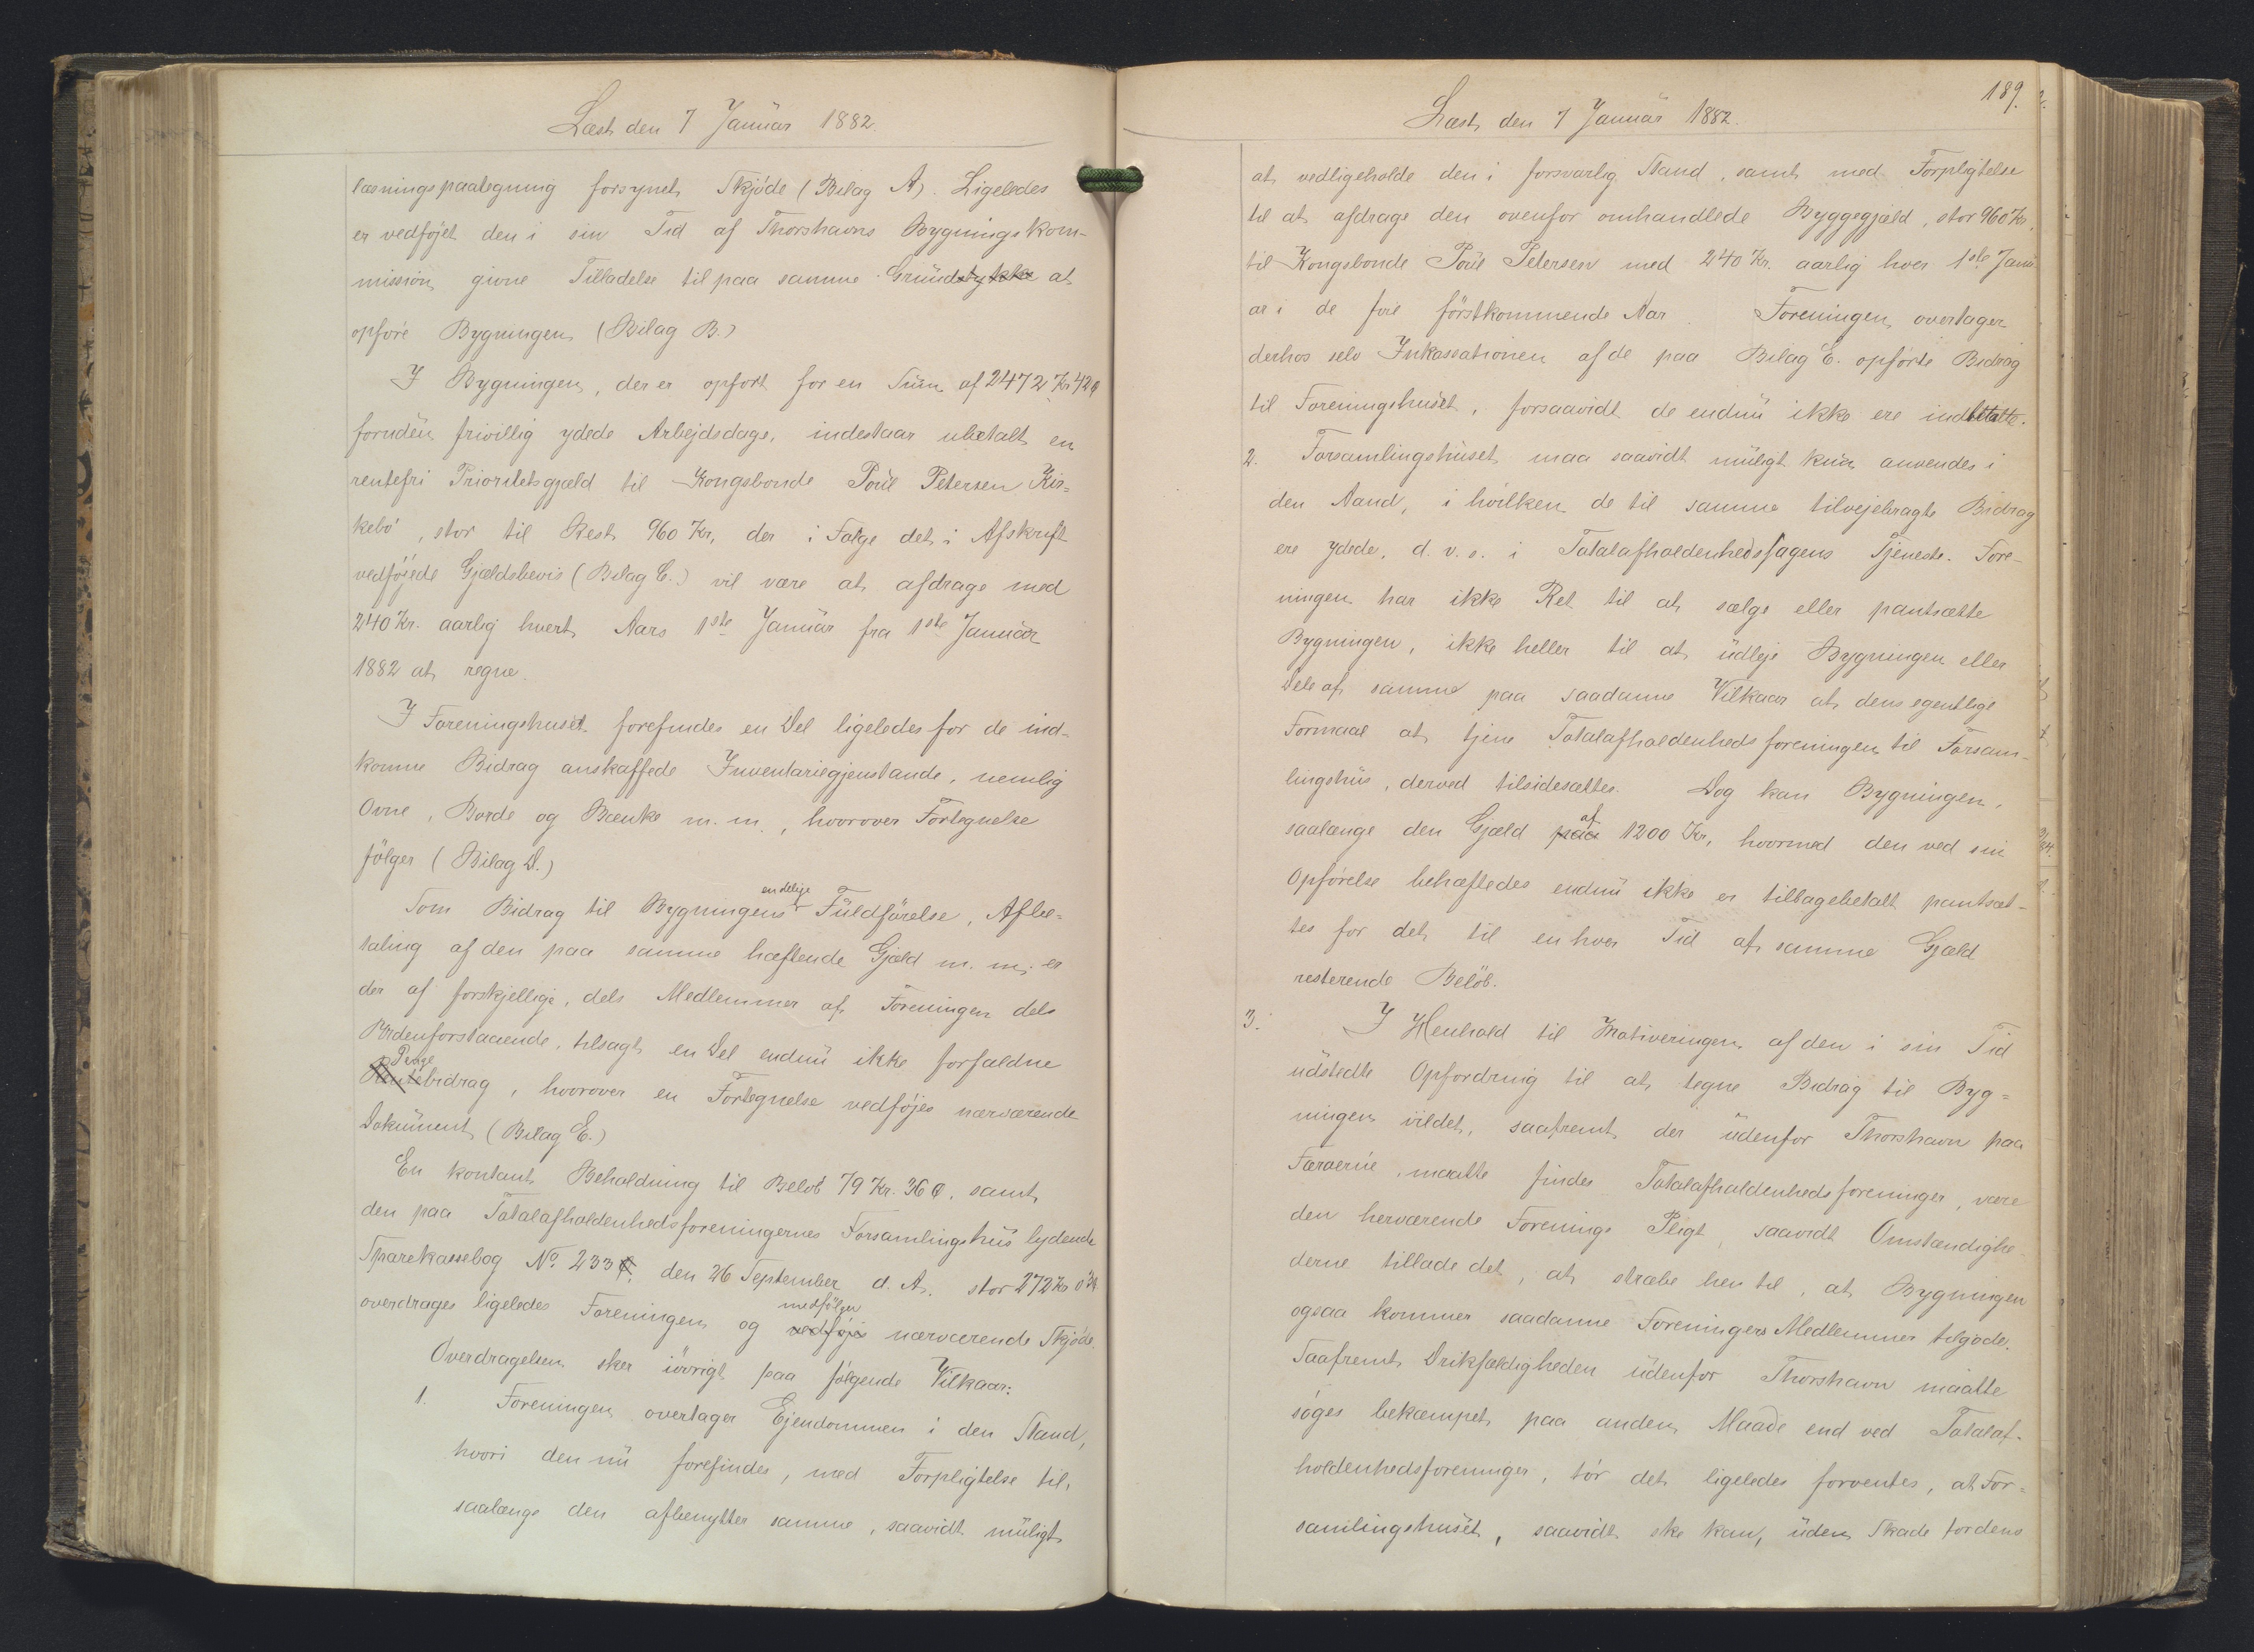 Læst den 7 Januar 1882.
læsningspaategning forsynet Skjøde (Bilag A). Ligeledes
er vedføjet den i sin Tid af Thorshavns Bygningskom-
mission givne Tilladelse til paa samme Grundstykke at
opføre Bygningen (Bilag B.)
I Bygningen, der er opført for en Sum af 2472 Kr 42 Ø
foruden frivillig ydede Arbejdsdage, indestaar ubetalt en
rentefri Prioritetsgjæld til Kongsbonde Poul Petersen Kir=
kebø, stor til Rest 960 Kr, der i Følge det i Afskrift
vedføjede Gjældsbevis (Bilag C.) vil være at afdrage med
240 Kr. aarlig hvert Aars 1ste Januar fra 1ste Januar
1882 at regne.
I Foreningshuset forefindes en Del ligeledes for de ind-
komne Bidrag anskaffede Inventariegjenstande, nemlig
Ovne, Borde og Bænke m. m., hvorover Fortegnelse
følger (Bilag D.)
Som Bidrag til Bygningens endelige Fuldførelse, Afbe=
taling af den paa samme hæftende Gjæld m. m. er
der af forskjellige, dels Medlemmer af Foreningen dels
Udenforstaaende, tilsagt en Del endnu ikke forfaldne
Pengebidrag, hvorover en Fortegnelse vedføjes nærværende
Dokument (Bilag E.)
En kontant Beholdning til Beløb 79 Kr. 36 Ø, samt
den paa Totalafholdenhedsforeningernes Forsamlingshus lydende
Sparekassebog No. 233 den 26 September d. A. stor 272 Kr
overdrages ligeledes Foreningen og vedføjes medfølger nærværende Skjøde.
Overdragelsen sker iøvrigt paa følgende Vilkaar:
1. Foreningen overtager Ejendommen i den Stand,
hvori den nu forefindes, med Forpligtelse til,
saalænge den afbenytter samme, saavidt muligt
189.
Læst den 7 Januar 1882.
at vedligeholde den i forsvarlig Stand, samt med Forpligtelse
til at afdrage den ovenfor omhandlede Byggegjæld, stor 960 Kr.
til Kongsbonde Poul Petersen med 240 Kr. aarlig hver 1ste Janu-
ar i de fire førstkommende Aar. Foreningen overtager
derhos selv Inkassationen af de paa Bilag E. opførte Bidrag
til Foreningshuset, forsaavidt de endnu ikke ere indbetalte.
2. Forsamlingshuset maa saavidt muligt kun anvendes i
den Aand, i hvilken de til samme tilvejebragte Bidrag
ere ydede, d. v. s. i Totalafholdenhedssagens Tjeneste. Fore-
ningen har ikke Ret til at sælge eller pantsætte
Bygningen, ikke heller til at udleje Bygningen eller
Dele af samme paa saadanne Vilkaar at dens egentlige
Formaal at tjene Totalafholdenhedsforeningen til Forsam-
lingshus, derved tilsidesættes. Dog kan Bygningen,
saalænge den Gjæld paa af 1200 Kr, hvormed den ved sin
Opførelse behæftedes endnu ikke er tilbagebetalt pantsæt-
tes for det til enhver Tid af samme Gjæld
resterende Beløb.
3. I Henhold til Motiveringen af den i sin Tid
udstedte Opfordring til at tegne Bidrag til Byg=
ningen vildet, saafremt der udenfor Thorshavn paa
Færøerne maatte findes Totalafholdenhedsforeninger, være
den herværende Forenings Pligt, saavidt Omstændighe-
derne tillade det, at stræbe hen til, at Bygningen
ogsaa kommer saadanne Foreningers Medlemmer tilgode.
Saafremt Drikfældigheden udenfor Thorshavn maatte
søges bekæmpet paa anden Maade end ved Totalaf-
holdenhedsforeninger, tør det ligeledes forventes, at For=
samlingshuset, saavidt ske kan, uden Skade for dens